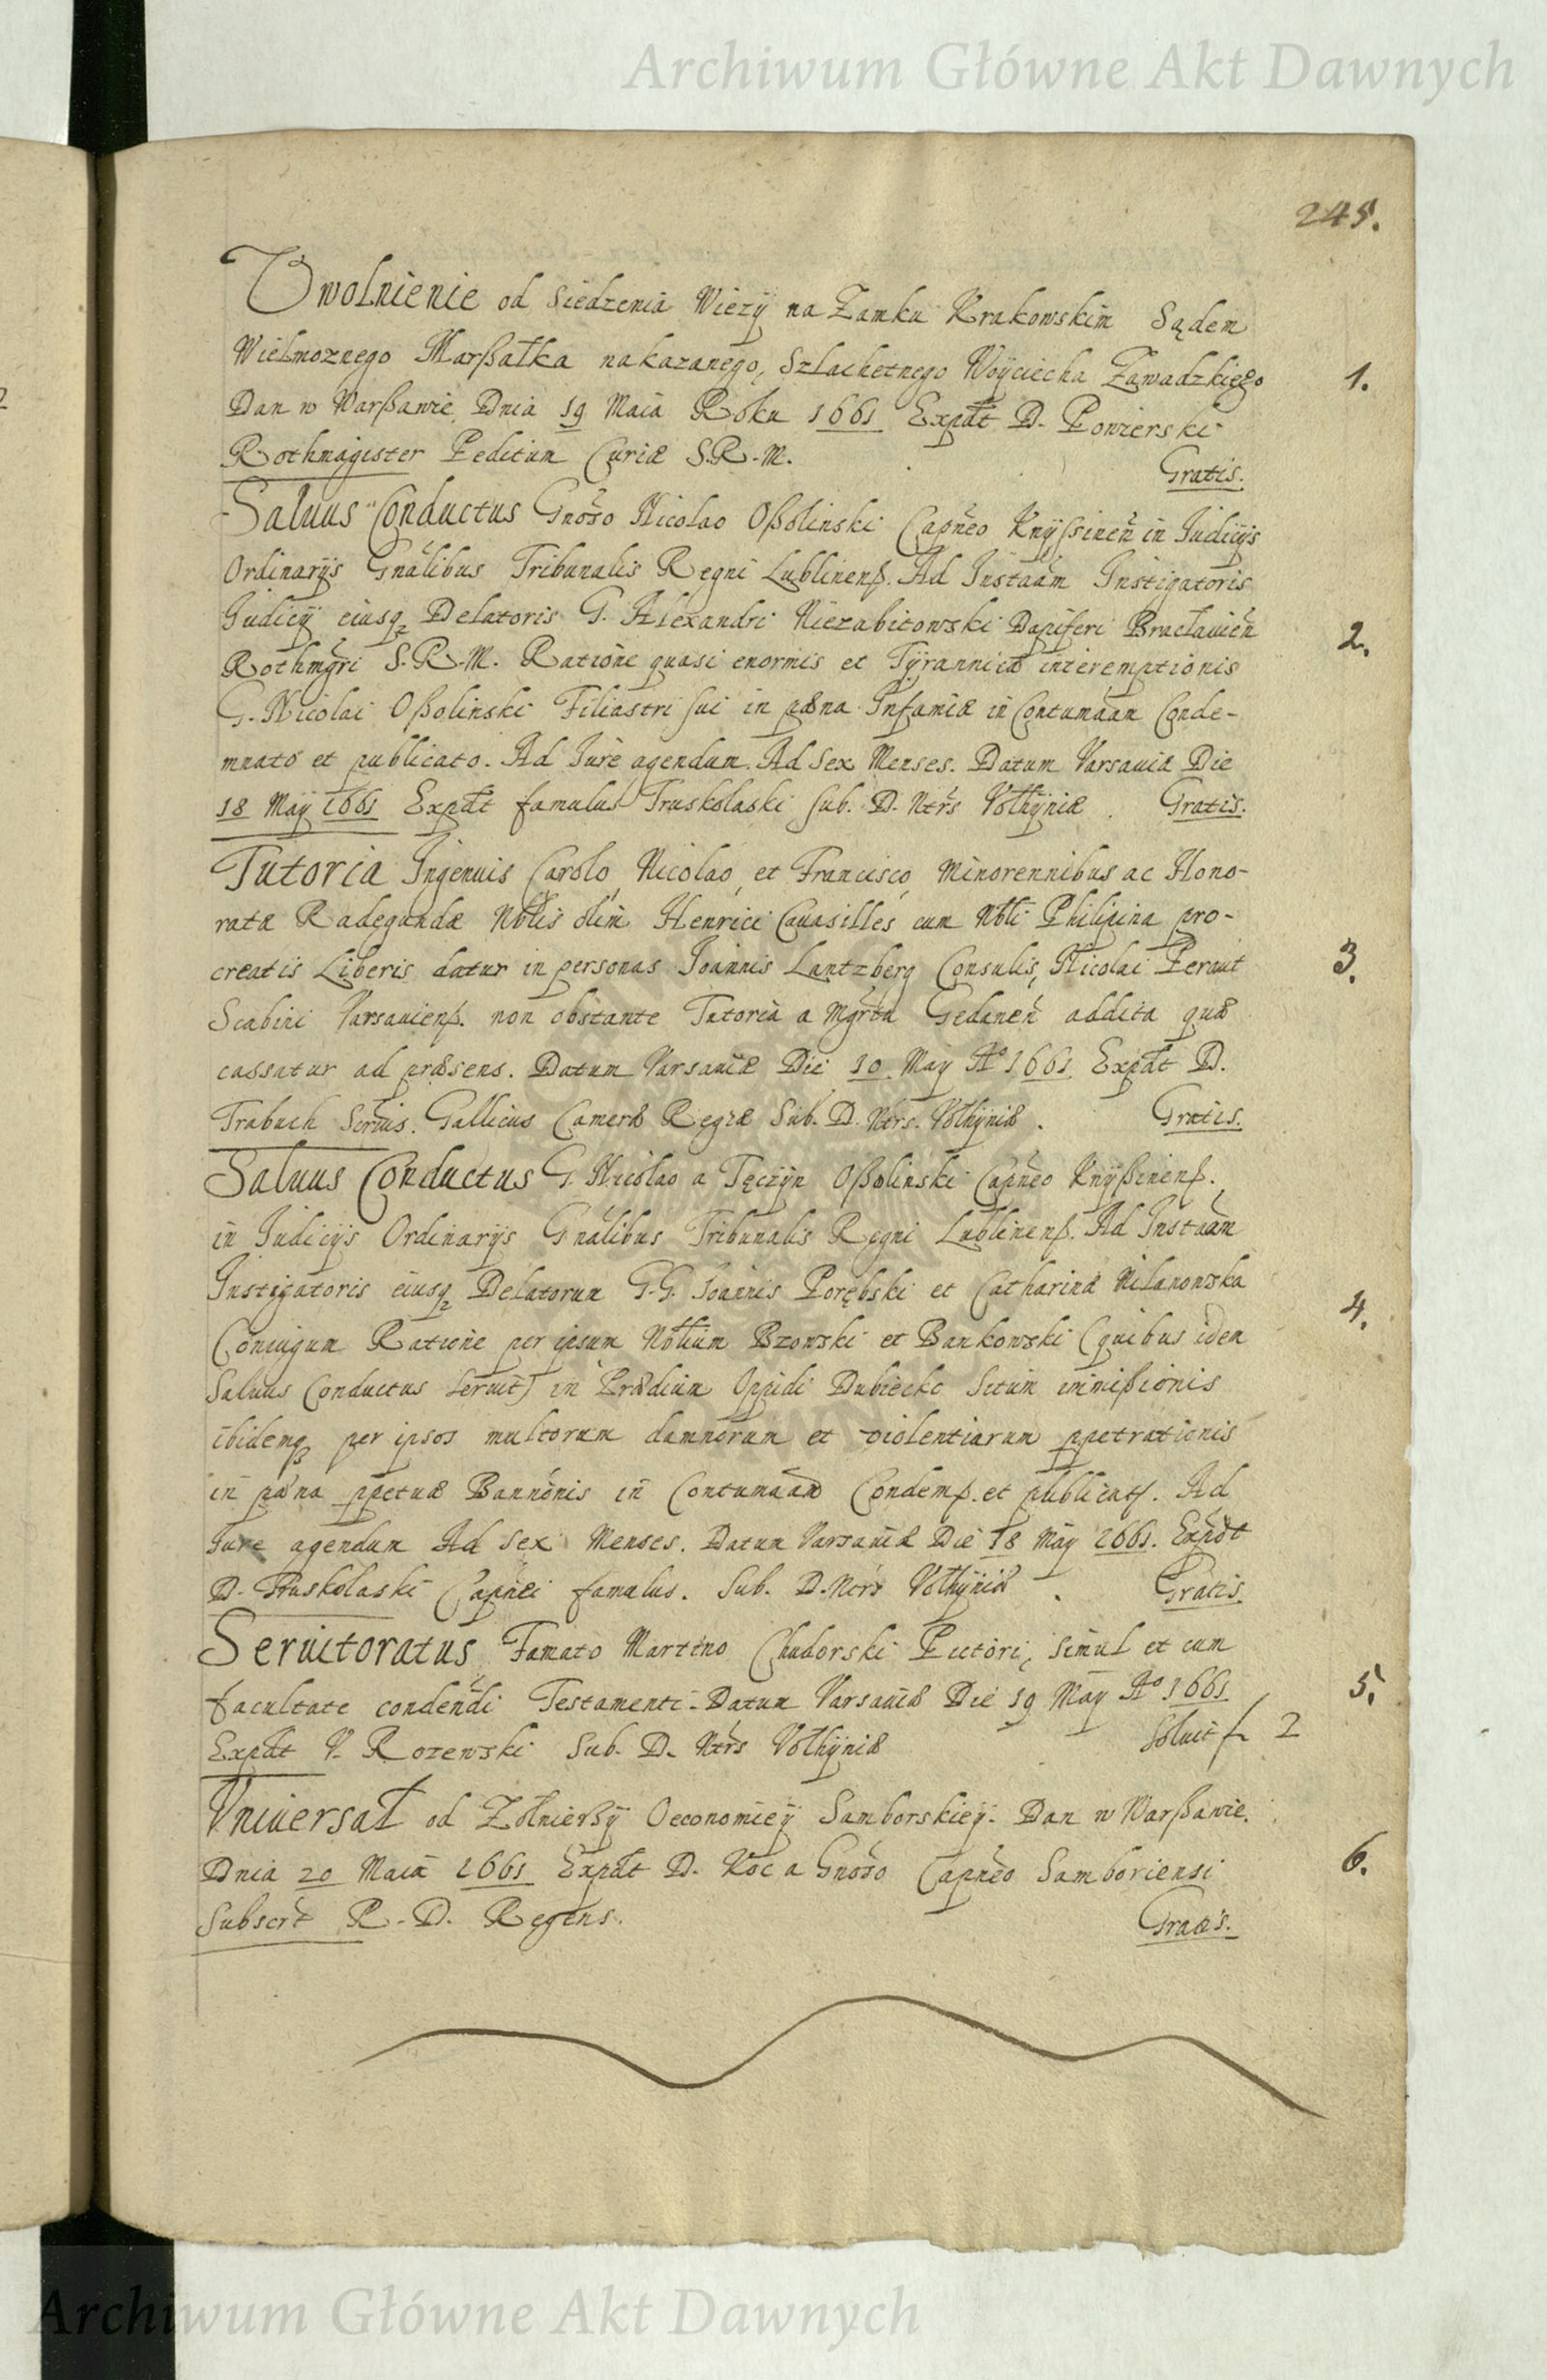 Archiwum Główne Akt Dawnych
245.
Uwolnienie od Siedzenia Wiezÿ na Zamku Krakowskim Sądem
Wielmoznego Marßałka nakazanego, Szlachetnego Woÿciecha Zawadzkiego
1.
Dan w Warßawie Dnia 19 Maia Roku 1661 Expdt D. Powierski
Rothmagister Peditum Curiæ S.R.M.
Gratis.
Saluus Conductus Gnoso Nicolao Oßolinski Capneo Knÿssinen in Judicÿs
Ordinarÿs Gnalibus Tribunalis Regni Lublinenß. Ad Instaam Instigatoris
Judicÿ eiusqz Delatoris G. Alexandri Niezabitowski Dapiferi Bracłauien
2.
Rothmgri S.R.M. Ratione quasi enormis et Tÿrannicæ interemptionis
G. Nicolai Oßolinski Filiastri sui in pæna Infamiæ in Contumaam Conde-
mnato et publicato. Ad Jure agendum. Ad Sex Menses. Datum Varsauiæ Die
18 Maÿ 1661 Expdt famulus Truskolaski Sub. D. Ntrs Volhÿniæ. Gratis.
Tutoria Ingenuis Carolo, Nicolao, et Francisco, Minorennibus ac Hono-
ratæ Radegundæ Nblis olim Henrici Cauasilles cum Nbli Philipina pro-
creatis Liberis datur in personas Joannis Lantzberg Consulis, Nicolai Peraut
3.
Scabini Varsauienß. non obstante Tutoria a Mgrtu Gedanen addita quæ
cassatur ad præsens. Datum Varsauiæ Die 10 May Aº 1661 Expdt D.
Trabuch Seruis. Gallicus Cameræ Regiæ Sub. D. Ntrs. Volhÿniæ.
Gratis.
Saluus Conductus G. Nicolao a Tęczÿn Oßolinski Capneo Knÿßinenß.
in Judicÿs Ordinarÿs Gnalibus Tribunalis Regni Lublinenß. Ad Instaam
Instigatoris eiusqz Delatorum G.G. Joannis Porębski et Catharinæ Milanowska
4.
Coniugum Ratione per ipsum Nobilium Bzowski et Bankowski (quibus idem
Saluus Conductus seruit) in Prædium Oppidi Dubiecko Situm immißionis
ibidemqz per ipsos multorum damnorum et violentiarum ppetrationis
in pæna ppetuæ Bannonis in Contumaam Condemß. et publicatß. Ad
Jure agendum Ad Sex Menses. Datum Varsauiæ Die 18 May 1661. Expdt
D. Truskolaski Capnei famulus. Sub. D. Ntrs Volhÿniæ.
Gratis.
Seruitoratus Famato Martino Chudorski Pictori, simul et cum
facultate condendi Testamenti. Datum Varsauiæ Die 19 May Aº 1661
5.
Expdt V. Rozewski Sub. D. Ntrs Volhÿniæ
Soluit f. 2
Vniuersał od Zołnierßÿ Oeconomieÿ Samborskieÿ. Dan w Warßawie.
Dnia 20 Maia 1661 Expdt D. Koc a Gnoso Capneo Samboriensi
6.
Subscrt R. D. Regens.
Gratis.
Archiwum Główne Akt Dawnych